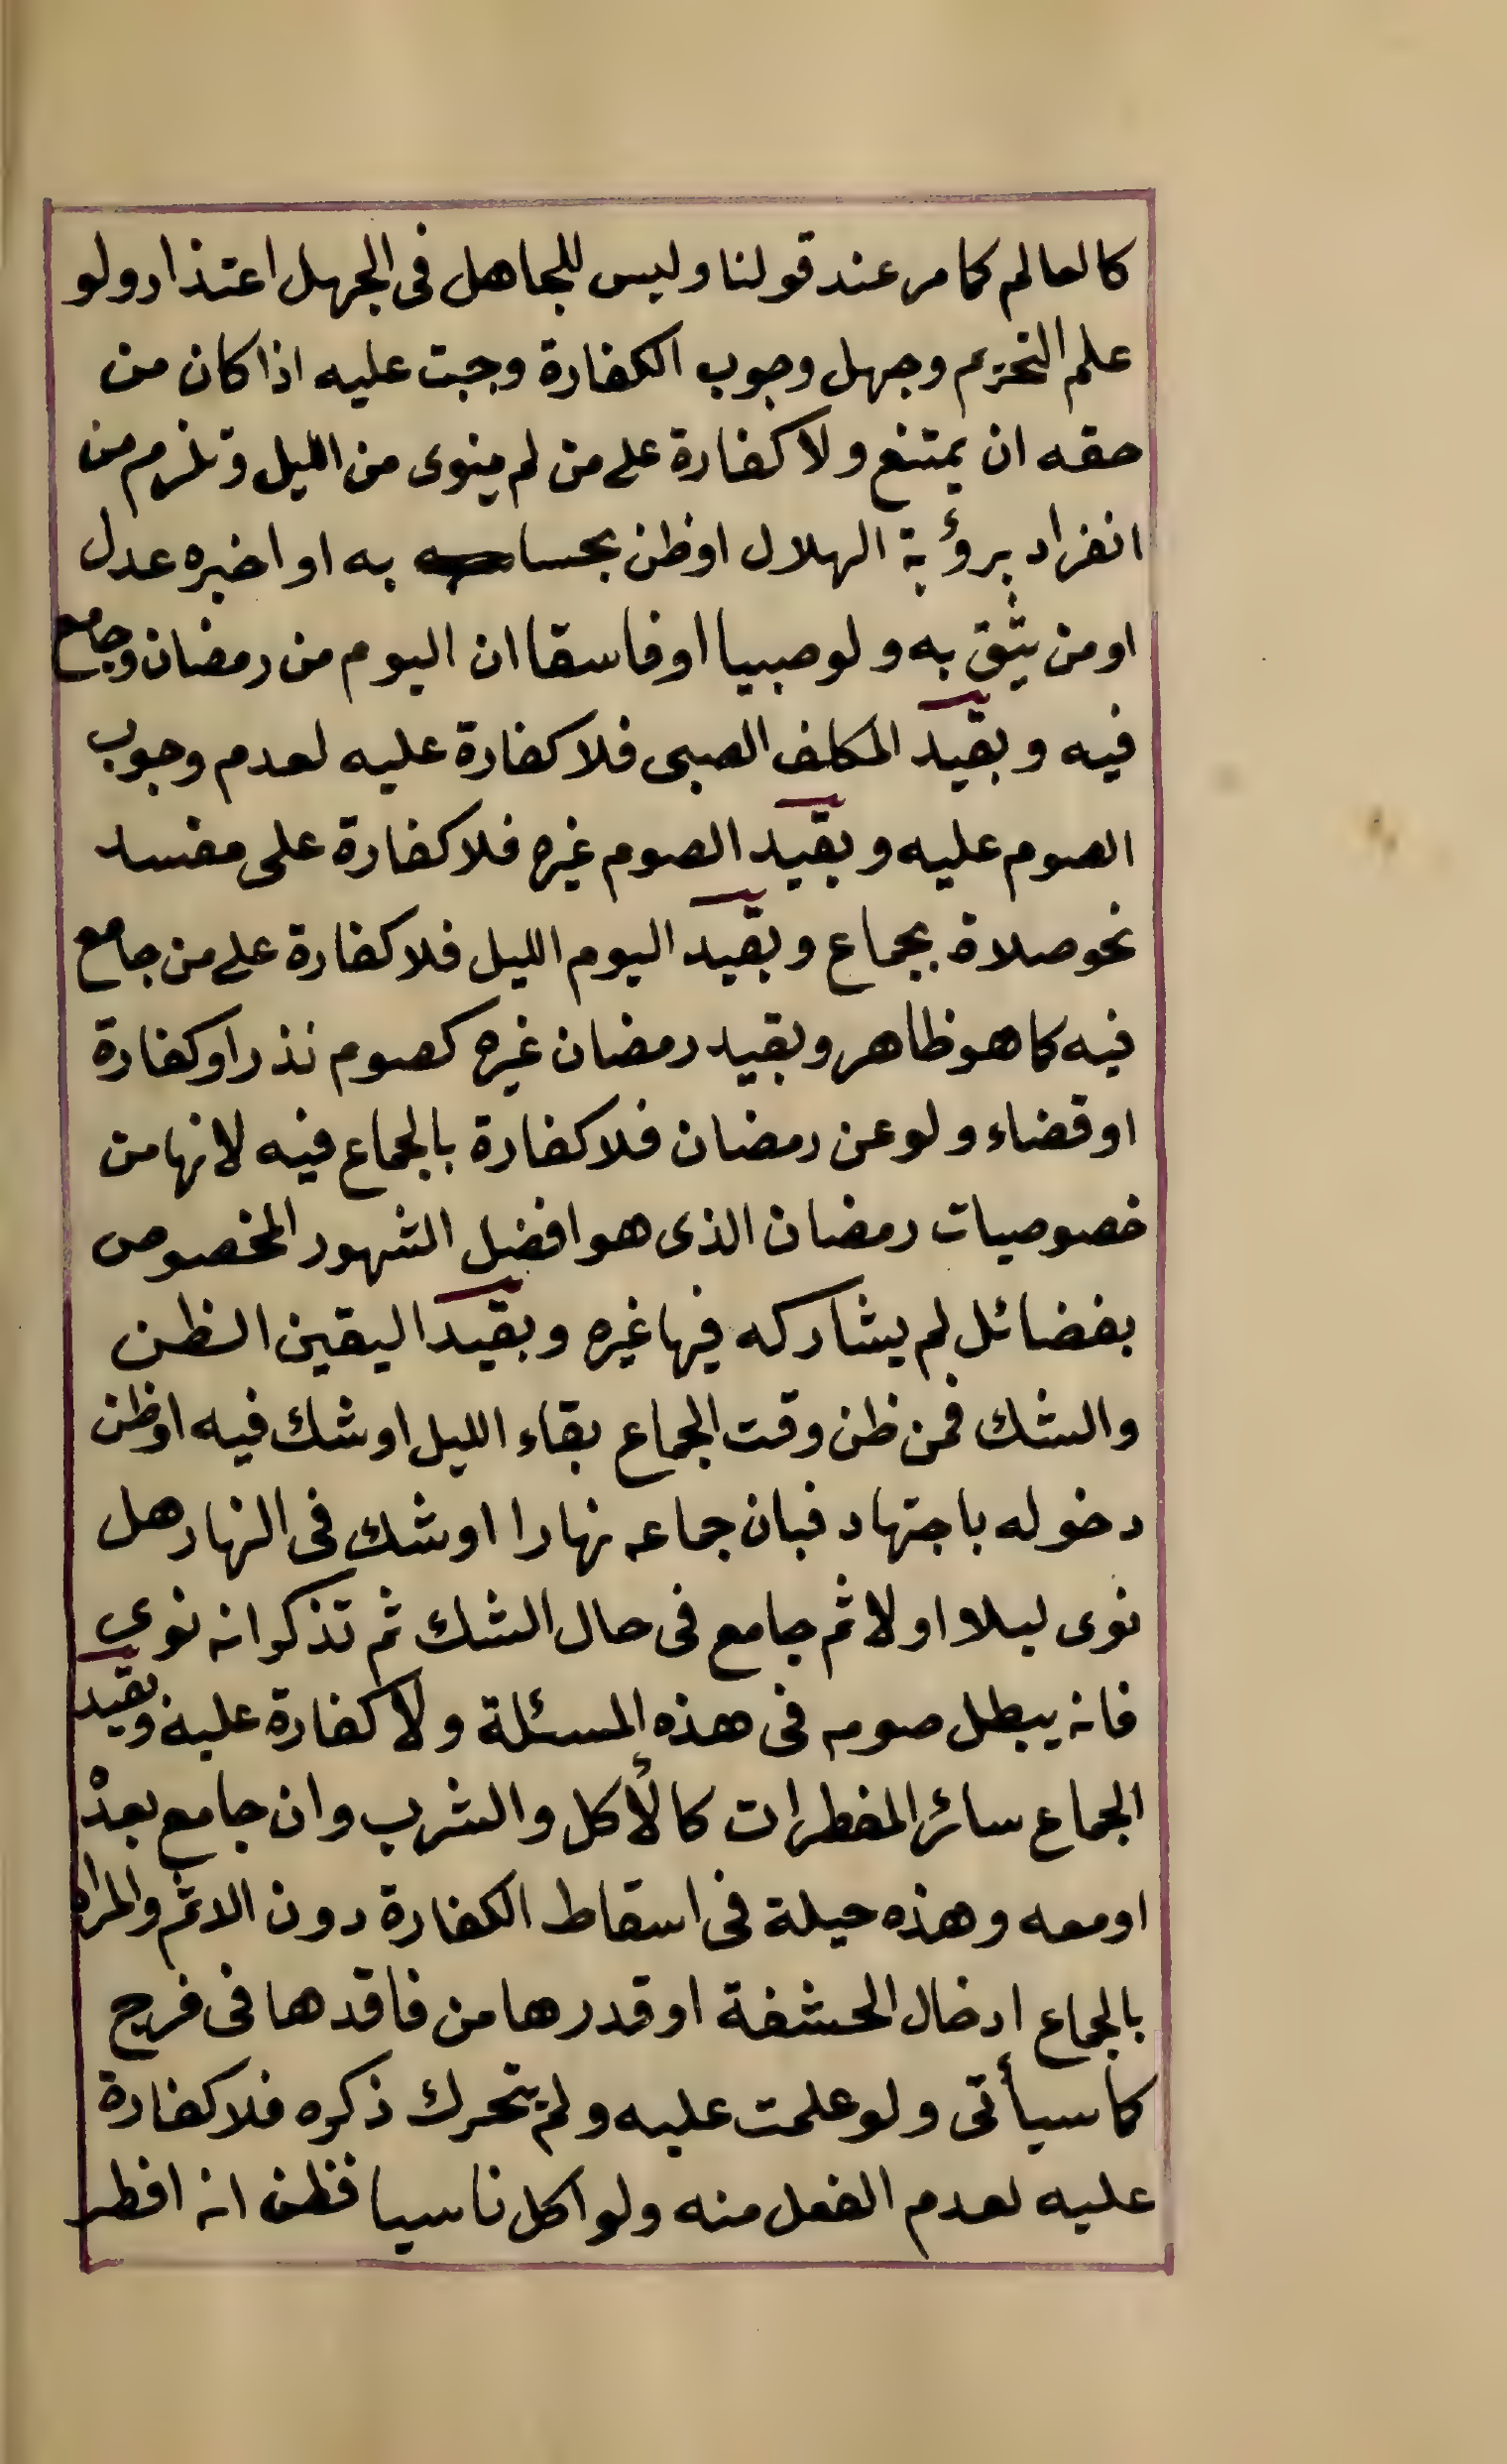 كالعالم كما مر عند قولنا وليس للجاهل فى الجهل اعتذار ولو
علم التحريم وجهل وجوب الكفارة وجبت عليه اذا كان من
حقه ان يمتنع ولا كفارة على من لم ينوى من الليل وتلزم من
انفراد برؤية الهلال او ظن بحسا به او اخبره عدل
او من يثق به ولو صبيا او فاسقا ان اليوم من رمضان وجامع
فيه وبقيد المكلف الصبى فلا كفارة عليه لعدم وجوب
الصوم عليه وبقيد الصوم غيره فلا كفارة على مفسد
نحو صلاة بجماع وبقيد اليوم الليل فلا كفارة على من جامع
فيه كما هو ظاهر وبقيد رمضان غيره كصوم نذر او كفارة
او قضاء ولو عن رمضان فلا كفارة بالجماع فيه لانها من
خصوصيات رمضان الذى هو افضل الشهور المخصوص
بفضائل لم يشاركه فيها غيره وبقيد اليقين الظن
والشك فمن ظن وقت الجماع بقاء الليل او شك فيه او ظن
دخوله باجتهاد فبان جماعه نهارا او شك فى النهار هل
نوى ليلا او لا ثم جامع فى حال الشك ثم تذكر انه نوى
فانه يبطل صومه فى هذه المسئلة ولا كفارة عليه وبقيد
الجماع سائر المفطرات كالأكل والشرب وان جامع بعده
او معه وهذه حيلة فى اسقاط الكفارة دون الاثم والمراد
بالجماع ادخال الحشفة او قدرها من فاقدها فى فرج
كما سيأتى ولو علمت عليه ولم يتحرك ذكره فلا كفارة
عليه لعدم الفعل منه ولو اكل ناسيا فظن انه افطر